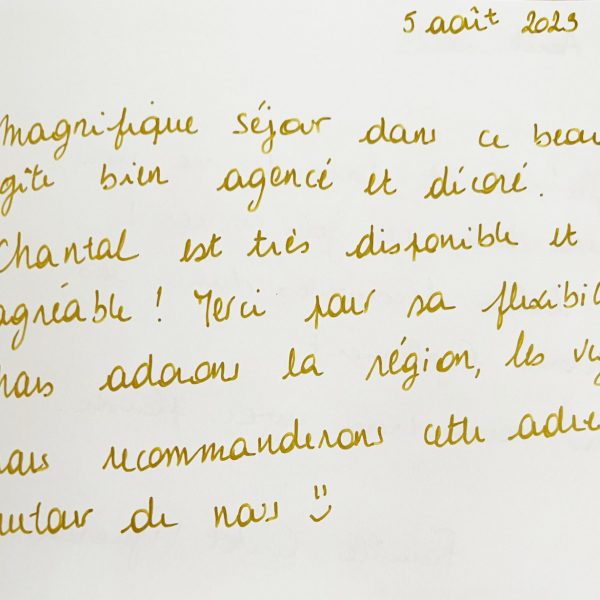 5 août 2023
Magnifique séjour dans ce beau
gîte bien agencé et décoré.
Chantal est très disponible et
agréable ! Merci pour sa flexibil
nous adorons la région, les
nous recommanderons cette adre
autour de nous